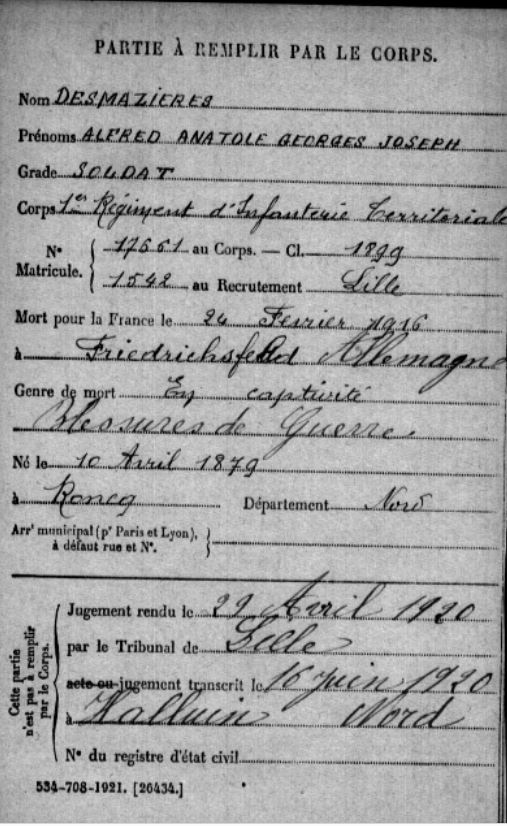 PARTIE À REMPLIR PAR LE CORPS.
Nom DESMAZIERES
Prénoms ALFRED ANATOLE GEORGES JOSEPH
Grade SOLDAT
Corps 1er Régiment d'Infanterie Territoriale
N° Matricule. 17661 au Corps. — Cl. 1899
1542 au Recrutement Lille
Mort pour la France le 24 Fevrier 1916
à Friedrichsfeld Allemagne
Genre de mort En captivité
Blessures de Guerre
Né le 10 Avril 1879
à Roncq Département Nord
Arrt municipal (pr Paris et Lyon),
à défaut rue et N°.
Cette partie
n'est pas à remplir
par le Corps.
Jugement rendu le 22 Avril 1920
par le Tribunal de Lille
acte ou jugement transcrit le 16 juin 1920
à Halluin Nord
N° du registre d'état civil
534-708-1921. [26434.]